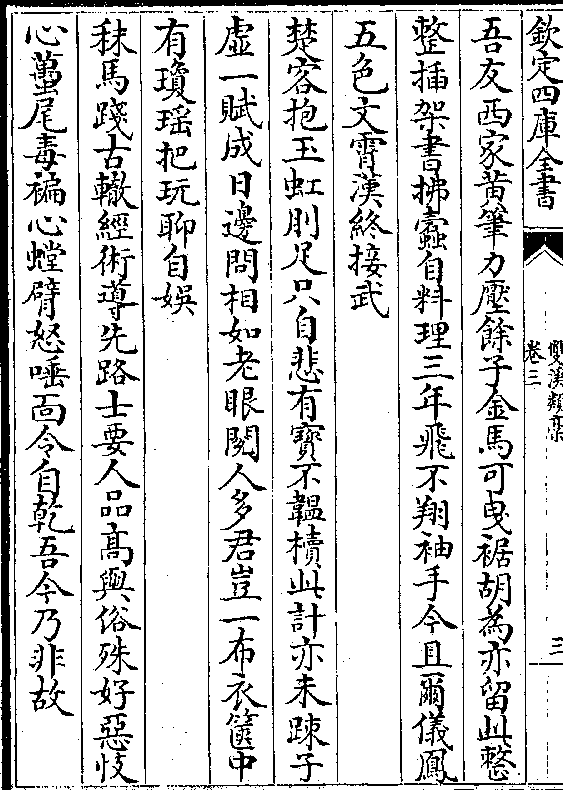 欽定四庫全書
雙溪類稾
卷三
三
吾友西家黃筆力壓餘子金馬可曳裾胡為亦留此整
整插架書拂蠧自料理三年飛不翔袖手今且爾儀鳳
五色文霄漢終接武
楚客抱玉虹刖足只自悲有寳不韞櫝此計亦未踈子
虛一賦成日邊問相如老眼閱人多君豈一布衣篋中
有瓊瑶把玩聊自娛
秣馬踐古轍經術導先路士要人品髙興俗殊好惡忮
心蠆尾毒褊心螳臂怒唾面令自乾吾今乃非故